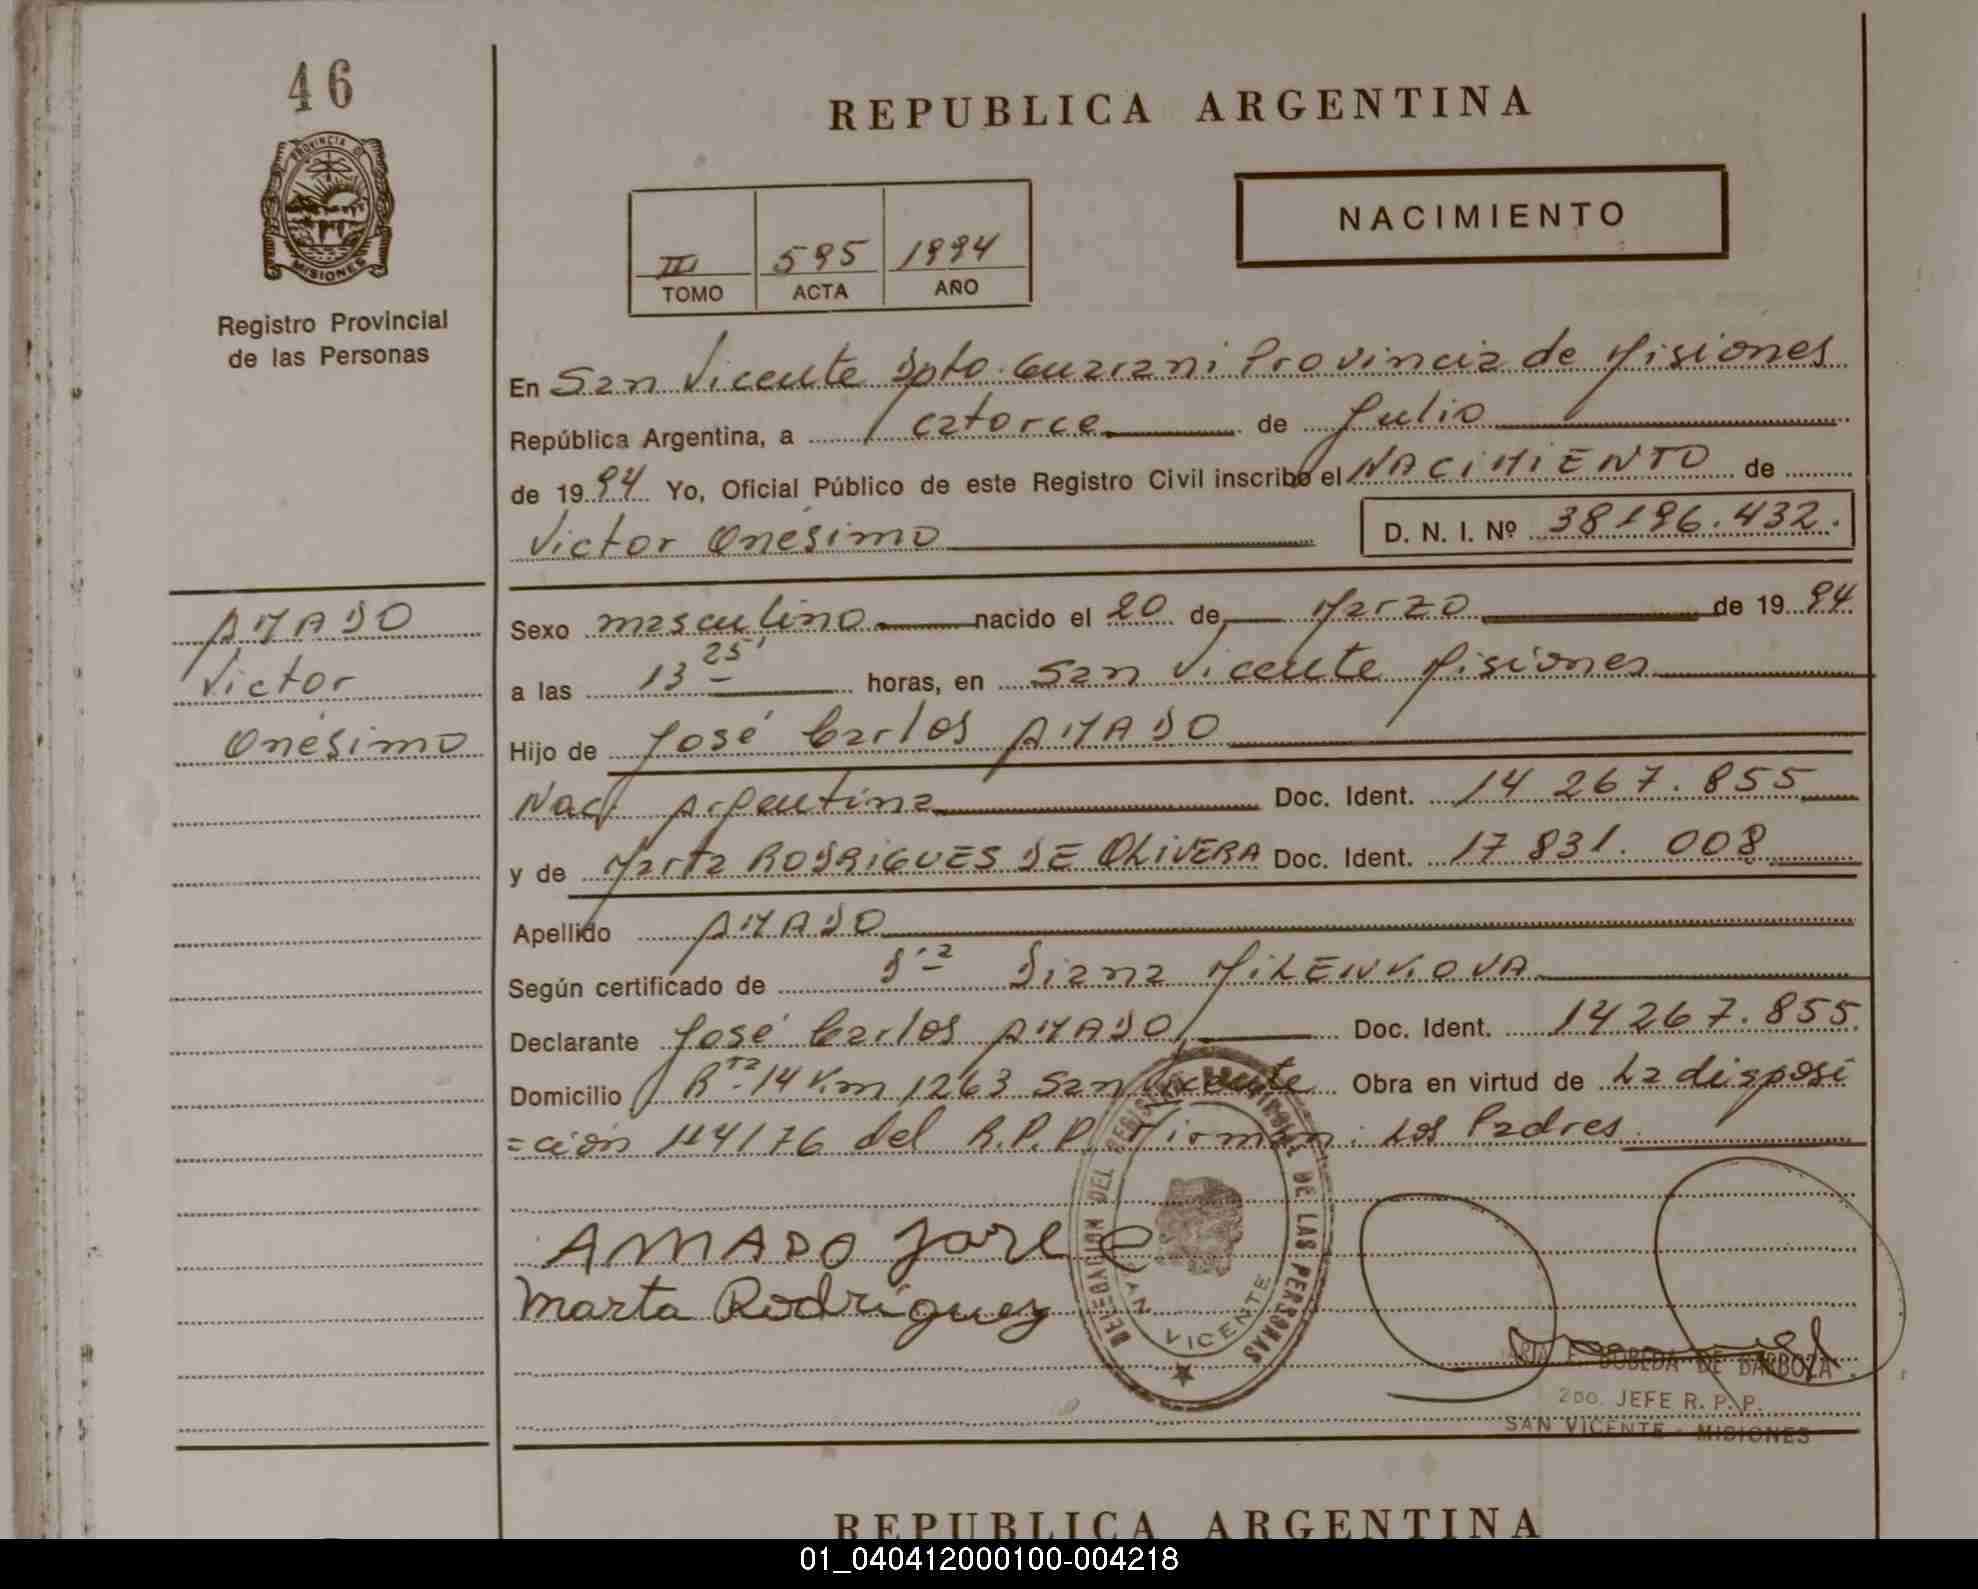 46
PROVINCIA D
MISIONES
Registro Provincial
de las Personas
REPUBLICA ARGENTINA
NACIMIENTO
III 595 1994
TOMO ACTA AÑO
En San Vicente Dpto. Guarani Provincia de Misiones
República Argentina, a catorce de Julio
de 1994 Yo, Oficial Público de este Registro Civil inscribo el NACIMIENTO de
Victor Onésimo D. N. I. Nº 38196.432.
AMADO
Victor
Onésimo
Sexo masculino nacido el 20 de Marzo de 1994
a las 13 25' horas, en San Vicente Misiones
Hijo de José Carlos AMADO
Nac. Argentina Doc. Ident. 14 267.855
y de Marta RODRIGUES DE OLIVERA Doc. Ident. 17 831.008
Apellido AMADO
Según certificado de Dra Diana
Declarante José Carlos AMADO Doc. Ident. 14267.855
Domicilio Rta. 14 Km 1263 San Vicente Obra en virtud de La disposi
=ción 114/76 del R.P.P. Firman: Los Padres.
AMADO José C
Marta Rodríguez
DELEGACION DEL REGISTRO PROVINCIAL DE LAS PERSONAS
SAN VICENTE
E. BOBEDA DE BARBOZA
2DO. JEFE R. P. P.
SAN VICENTE - MISIONES
REPUBLICA ARGENTINA
01_040412000100-004218